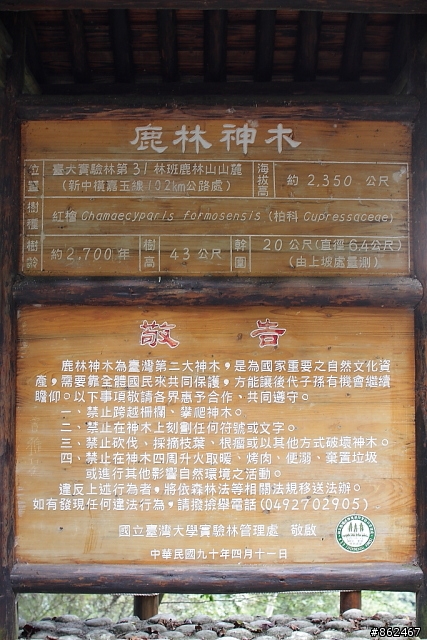 鹿林神木
位置 臺大實驗林第31林班鹿林山山麓
(新中橫嘉玉線102km公路處)
海拔高 約2,350公尺
樹種 紅檜Chamaecyparis formosensis(柏科Cupressaceae)
樹齡 約2,700年 樹高 43公尺 幹圍 20公尺(直徑6.4公尺)
(由上坡處量測)
敬告
鹿林神木為臺灣第二大神木,是為國家重要之自然文化資
產,需要靠全體國民來共同保護,方能讓後代子孫有機會繼續
瞻仰。以下事項敬請各界惠予合作、共同遵守。
一、禁止跨越柵欄、攀爬神木。
二、禁止在神木上刻劃任何符號或文字。
三、禁止砍伐、採摘枝葉、根瘤或以其他方式破壞神木。
四、禁止在神木四周升火取暖、烤肉、便溺、棄置垃圾
或進行其他影響自然環境之活動。
違反上述行為者,將依森林法等相關法規移送法辦。
如有發現任何違法行為,請撥檢舉電話(0492702905)
國立臺灣大學實驗林管理處 敬啟
中華民國九十年四月十一日
#862467